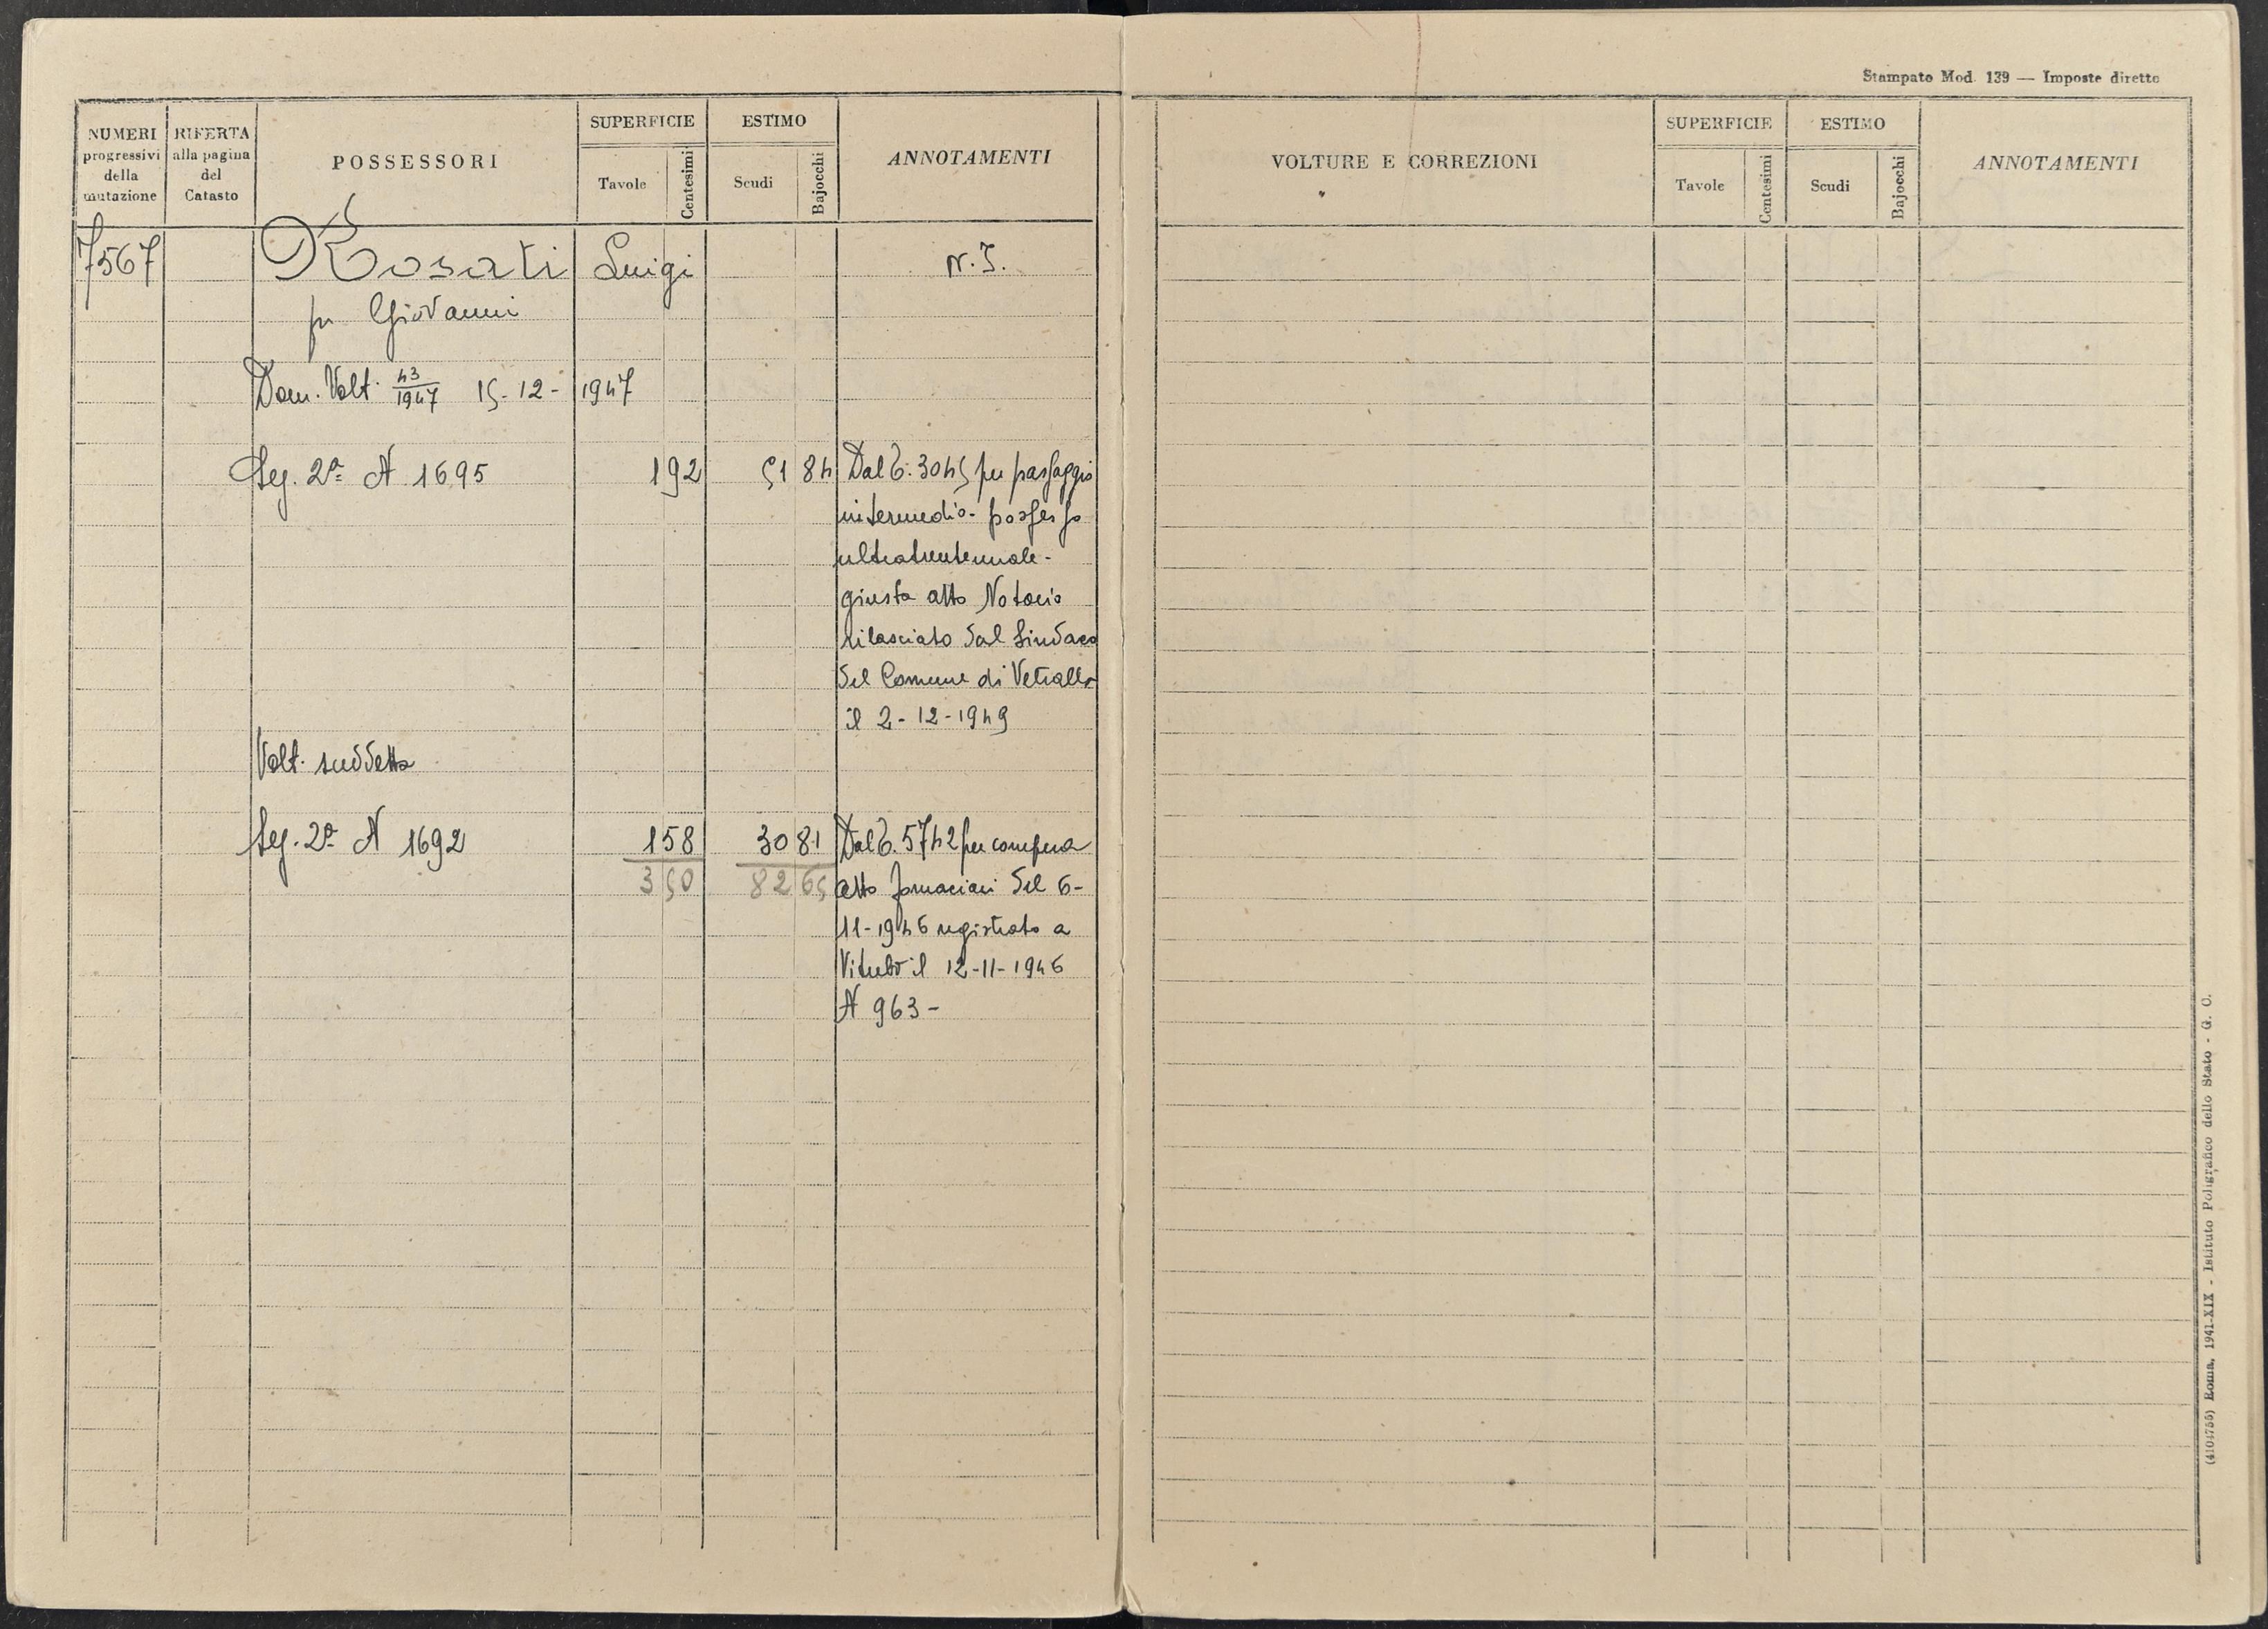 NUMERI progressivi della mutazione
RIFERTA alla pagina del Catasto
POSSESSORI
SUPERFICIE
Tavole
Centesimi
ESTIMO
Scudi
Bajocchi
ANNOTAMENTI
7567 Rosati Luigi
fu Giovanni
Dom. Volt. 43/1947 15-12-1947
Seg. 2ª N 1695 1 92 51 84 Dal C. 3045 per passaggio
intermedio - possesso
ultratrentennale -
giusta atto Notorio
rilasciato dal Sindaco
del Comune di Vetralla
il 2-12-1949
Volt. suddetta
Seg. 2ª N 1692 1 58 30 81 Dal C. 5742 per compera
3 50 82 65 atto Fornaciari del 6-
11-1946 registrato a
Viterbo il 12-11-1946
N 963 -
Stampato Mod. 139 — Imposte dirette
VOLTURE E CORREZIONI
SUPERFICIE
Tavole
Centesimi
ESTIMO
Scudi
Bajocchi
ANNOTAMENTI
(410755) Roma, 1941-XIX - Istituto Poligrafico dello Stato - G. C.